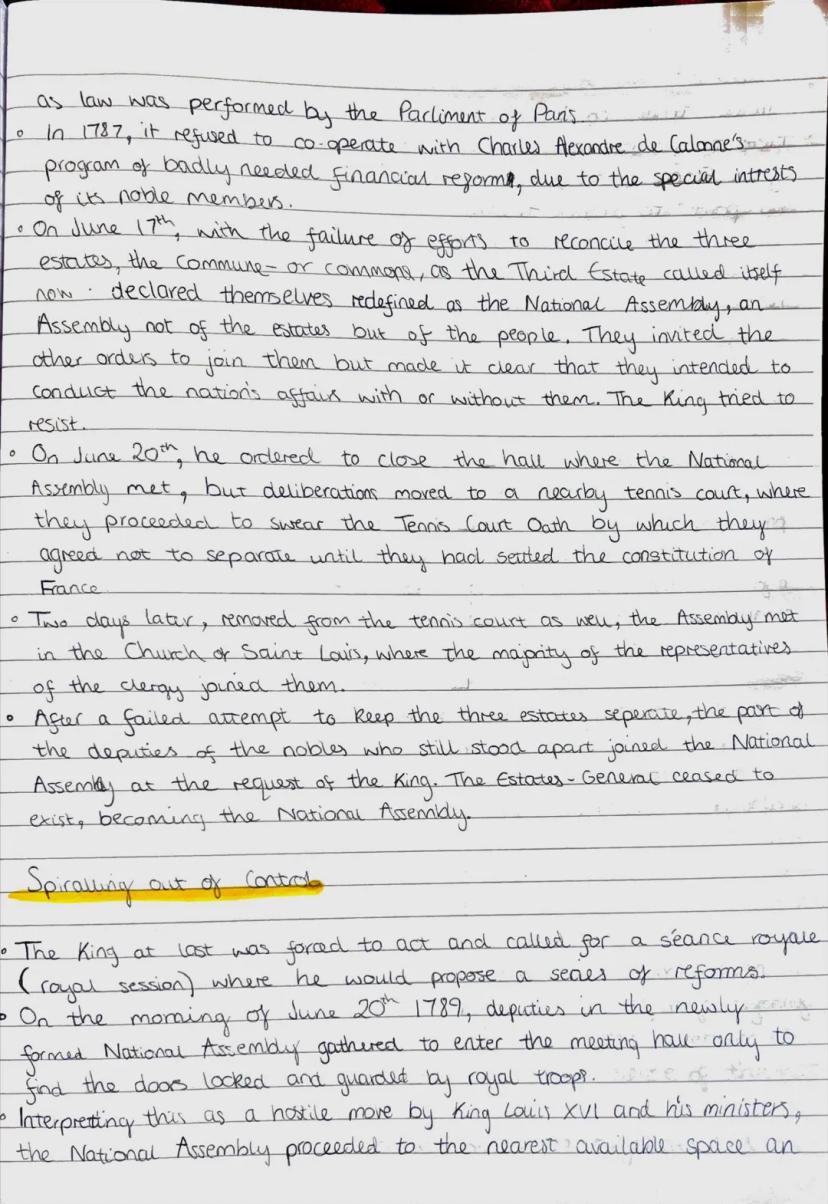 as law was performed by the Parliment of Paris
◦ In 1787, it refused to co-operate with Charles Alexandre de Calonne's
program of badly needed financial reforms, due to the special intrests
of its noble members.
◦ On June 17th, with the failure of efforts to reconcile the three
estates, the Commune- or commons, as the Third Estate called itself
now - declared themselves redefined as the National Assembly, an
Assembly not of the estates but of the people. They invited the
other orders to join them but made it clear that they intended to
conduct the nation's affairs with or without them. The King tried to
resist.
◦ On June 20th, he ordered to close the hall where the National
Assembly met, but deliberations moved to a nearby tennis court, where
they proceeded to swear the Tennis Court Oath by which they
agreed not to separate until they had settled the constitution of
France
◦ Two days later, removed from the tennis court as well, the Assembly met
in the Church of Saint Louis, where the majority of the representatives
of the clergy joined them.
◦ After a failed attempt to keep the three estates seperate, the part of
the deputies of the nobles who still stood apart joined the National
Assembly at the request of the King. The Estates-General ceased to
exist, becoming the National Assembly.
Spiralling out of Control
◦ The King at last was forced to act and called for a séance royale
(royal session) where he would propose a series of reforms.
◦ On the morning of June 20th 1789, deputies in the newly
formed National Assembly gathered to enter the meeting hall only to
find the doors locked and guarded by royal troops.
◦ Interpretting this as a hostile move by King Louis XVI and his ministers,
the National Assembly proceeded to the nearest available space an